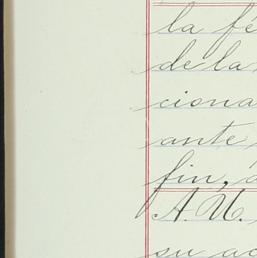 la fé
de la
ciona
ante
fin,
A. U.
su ac